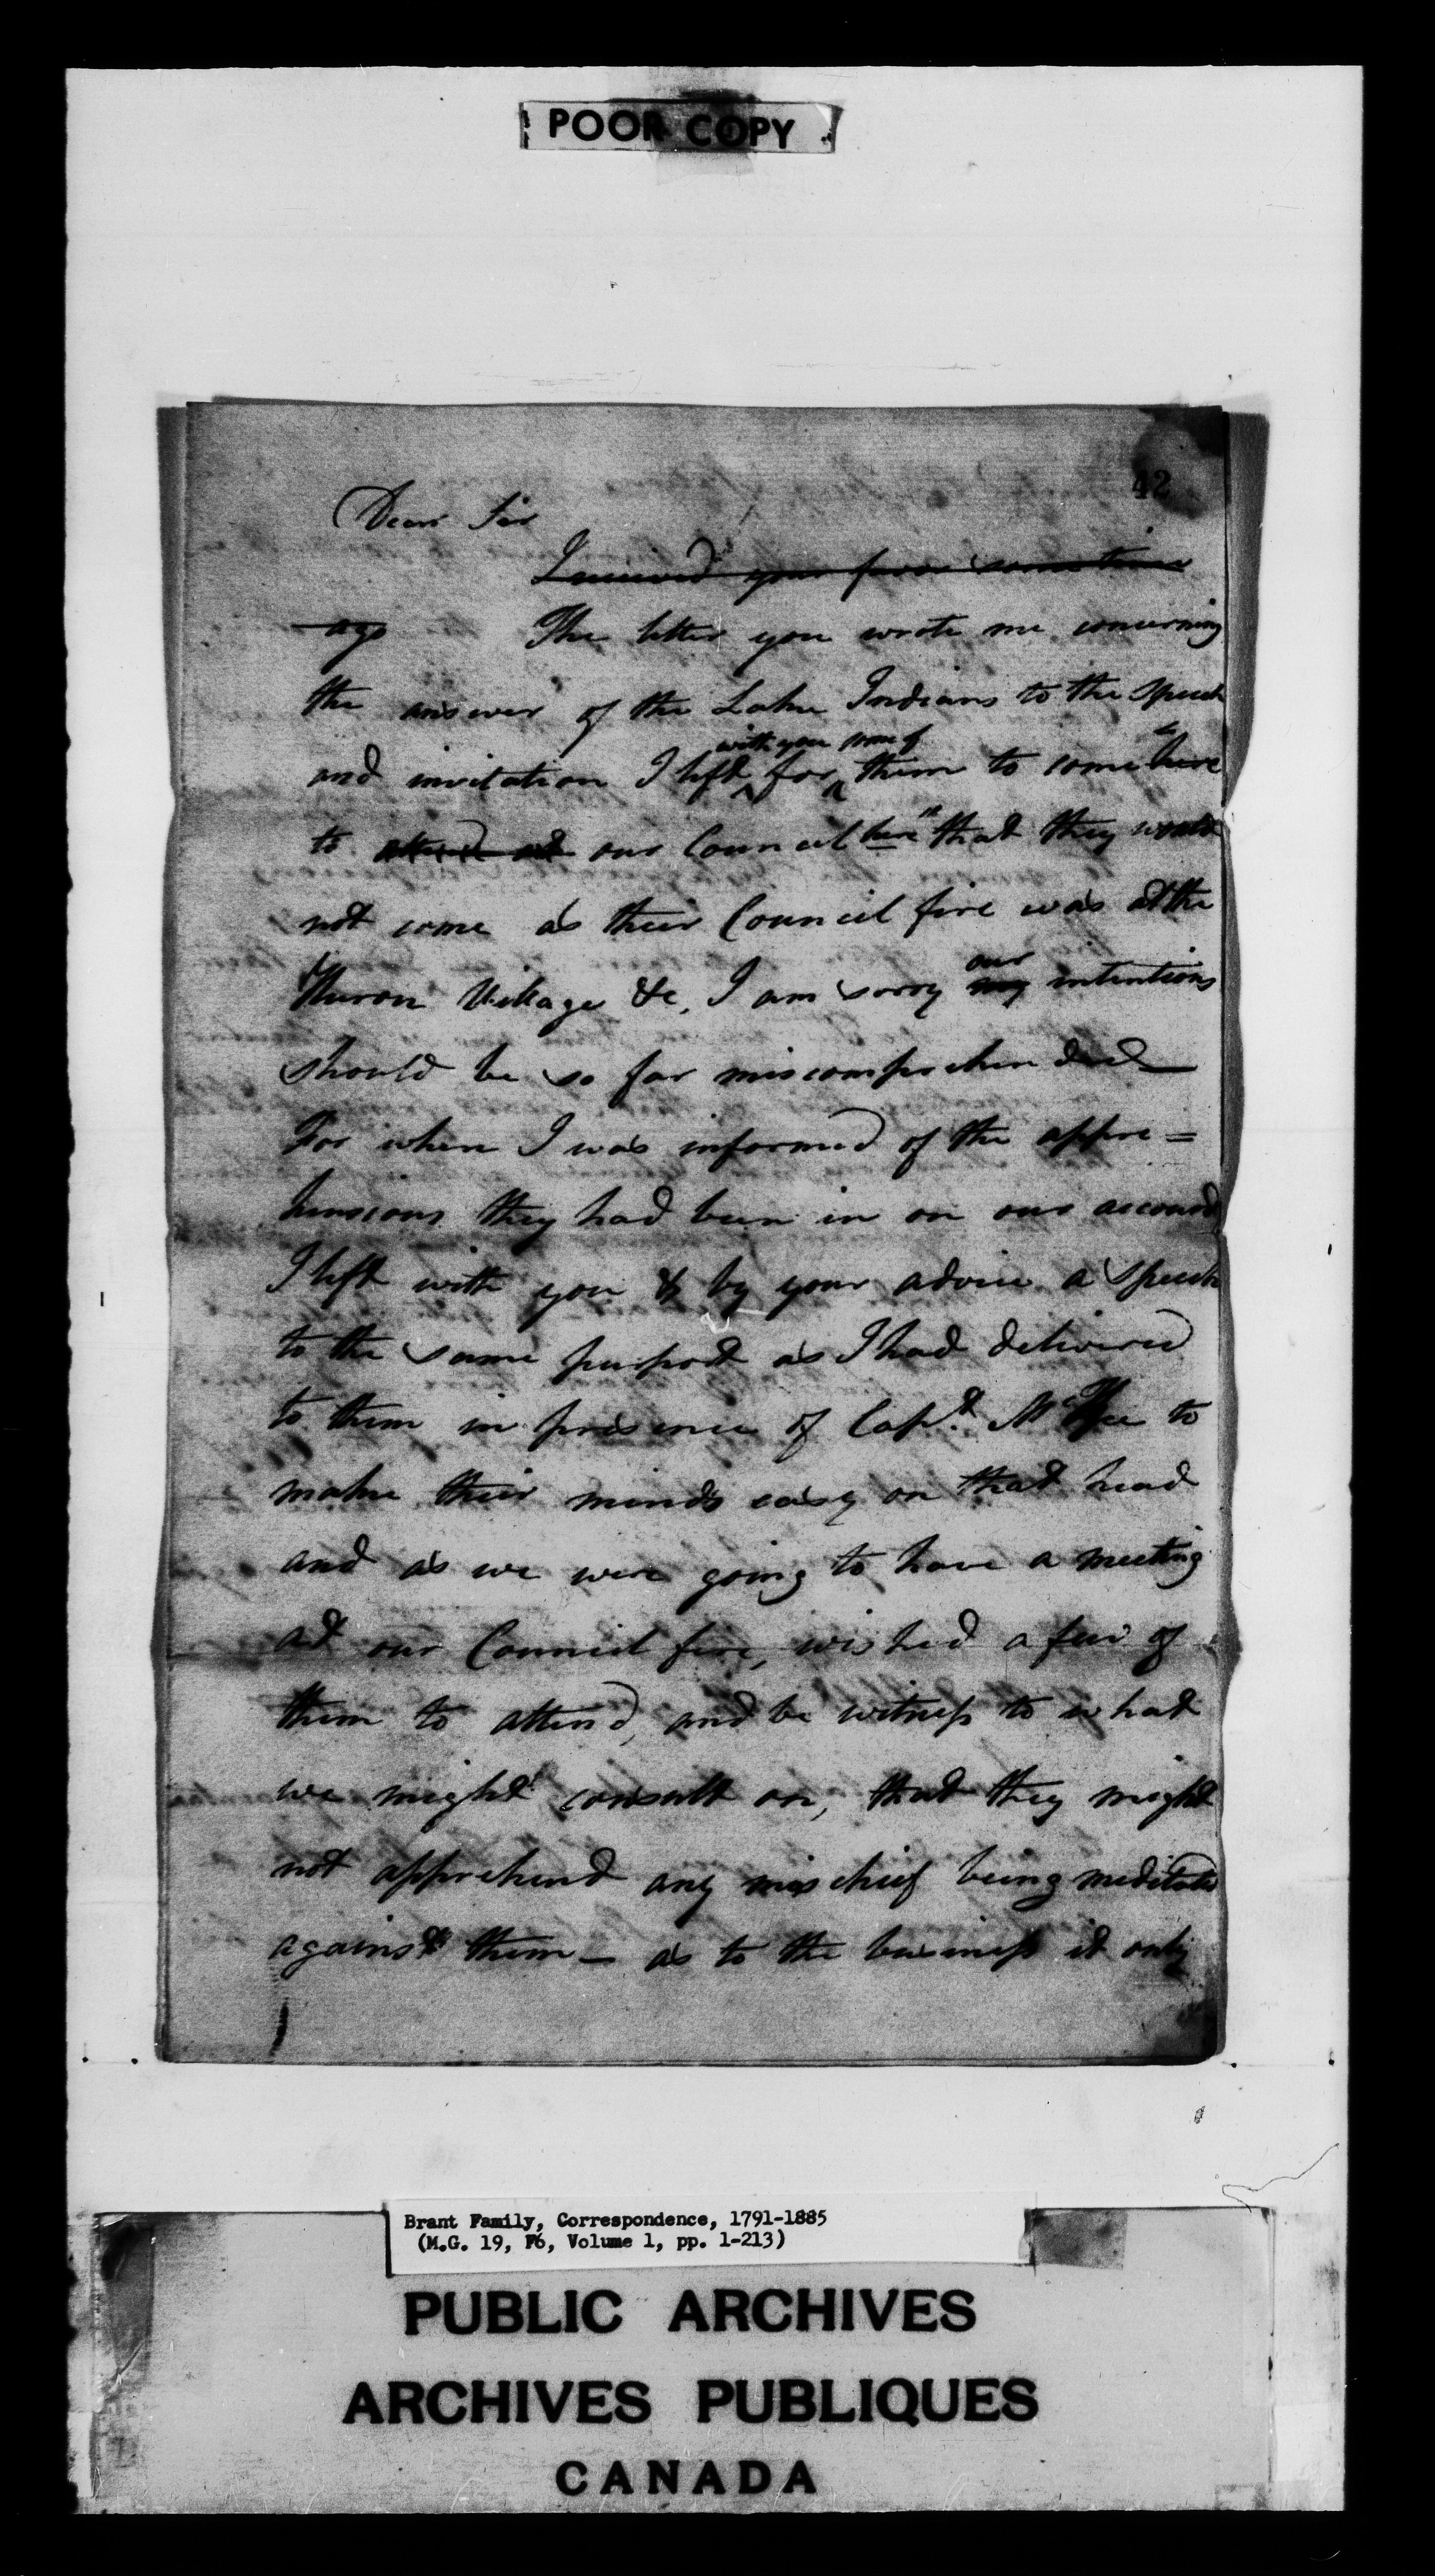 POOR COPY
42
Dear Sir
I received your favor some time
ago The letter you wrote me concerning
the answer of the Lake Indians to the speech
with you some of
and invitation I left for them to come here
to attend at our Council here that they would
not come as their Council fire was at the
our
Huron Village &c, I am sorry my intentions
should be so far miscomprehended
For when I was informed of the appre=
hensions they had been in on our account
I left with you & by your advice a speech
to the same purport as I had delivered
to them in presence of Capt. McKee to
make their minds easy on that head
and as we were going to have a meeting
at our Council fire, wished a few of
them to attend, and be witness to what
we might consult on, that they might
not apprehend any mischief being meditated
against them – as to the business it only
Brant Family, Correspondence, 1791-1885
(M.G. 19, F6, Volume 1, pp. 1-213)
PUBLIC ARCHIVES
ARCHIVES PUBLIQUES
CANADA